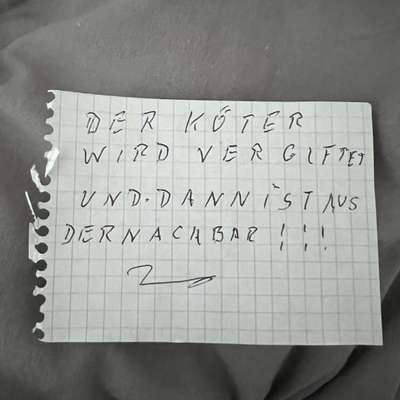 DER KÖTER
WIRD VERGIFTET
UND. DANN IST AUS
DER NACHBAR !!!